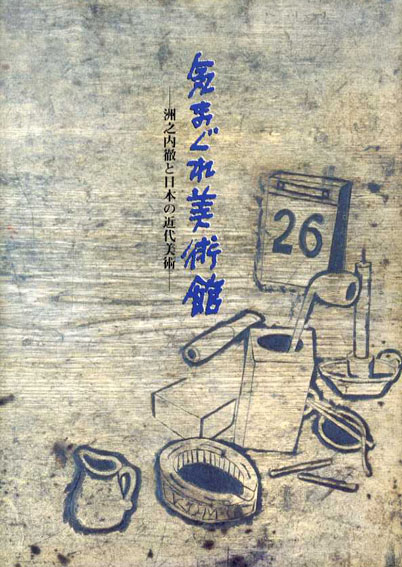 気まぐれ美術館
—洲之内徹と日本の近代美術—
26